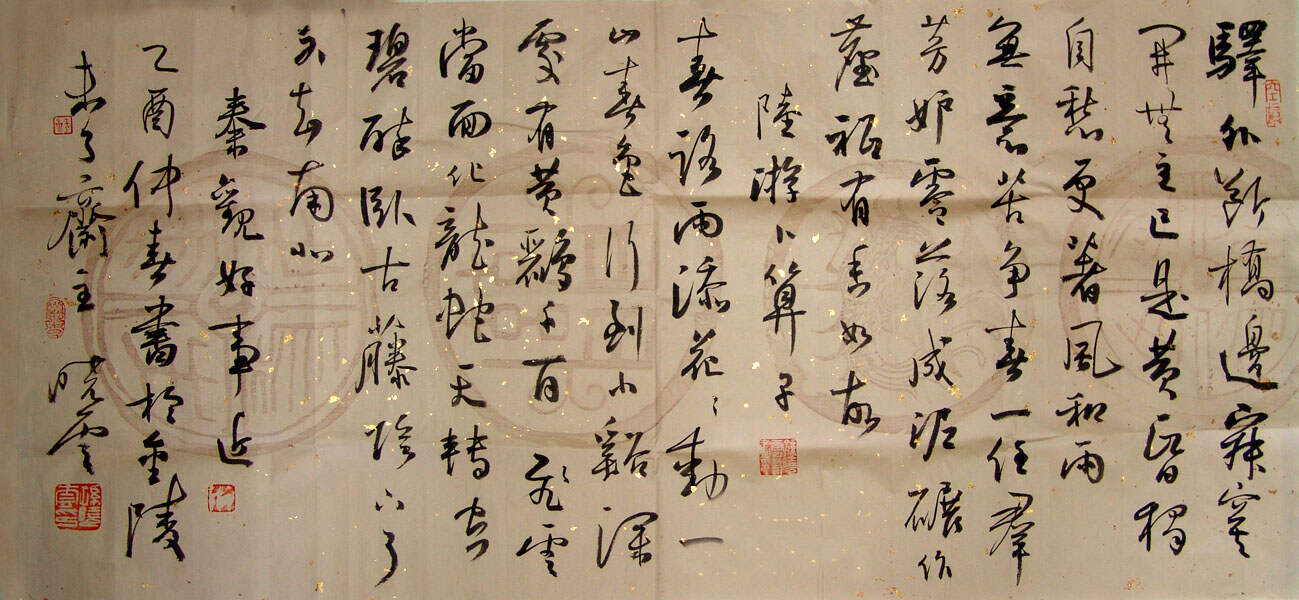 驛外斷橋邊寂寞
開無主已是黄昏獨
自愁更著風和雨
無意苦争春一任羣
芳妒零落成泥碾作
塵祇有香如故
陸游卜算子
春路雨添花〻動一
山春色行到小谿深
處有黄鸝千百飛雲
當面化龍蛇夭轉空
碧醉卧古藤陰下了
不知南北
秦觀好事近
乙酉仲春書於金陵
未了齋主曉雲